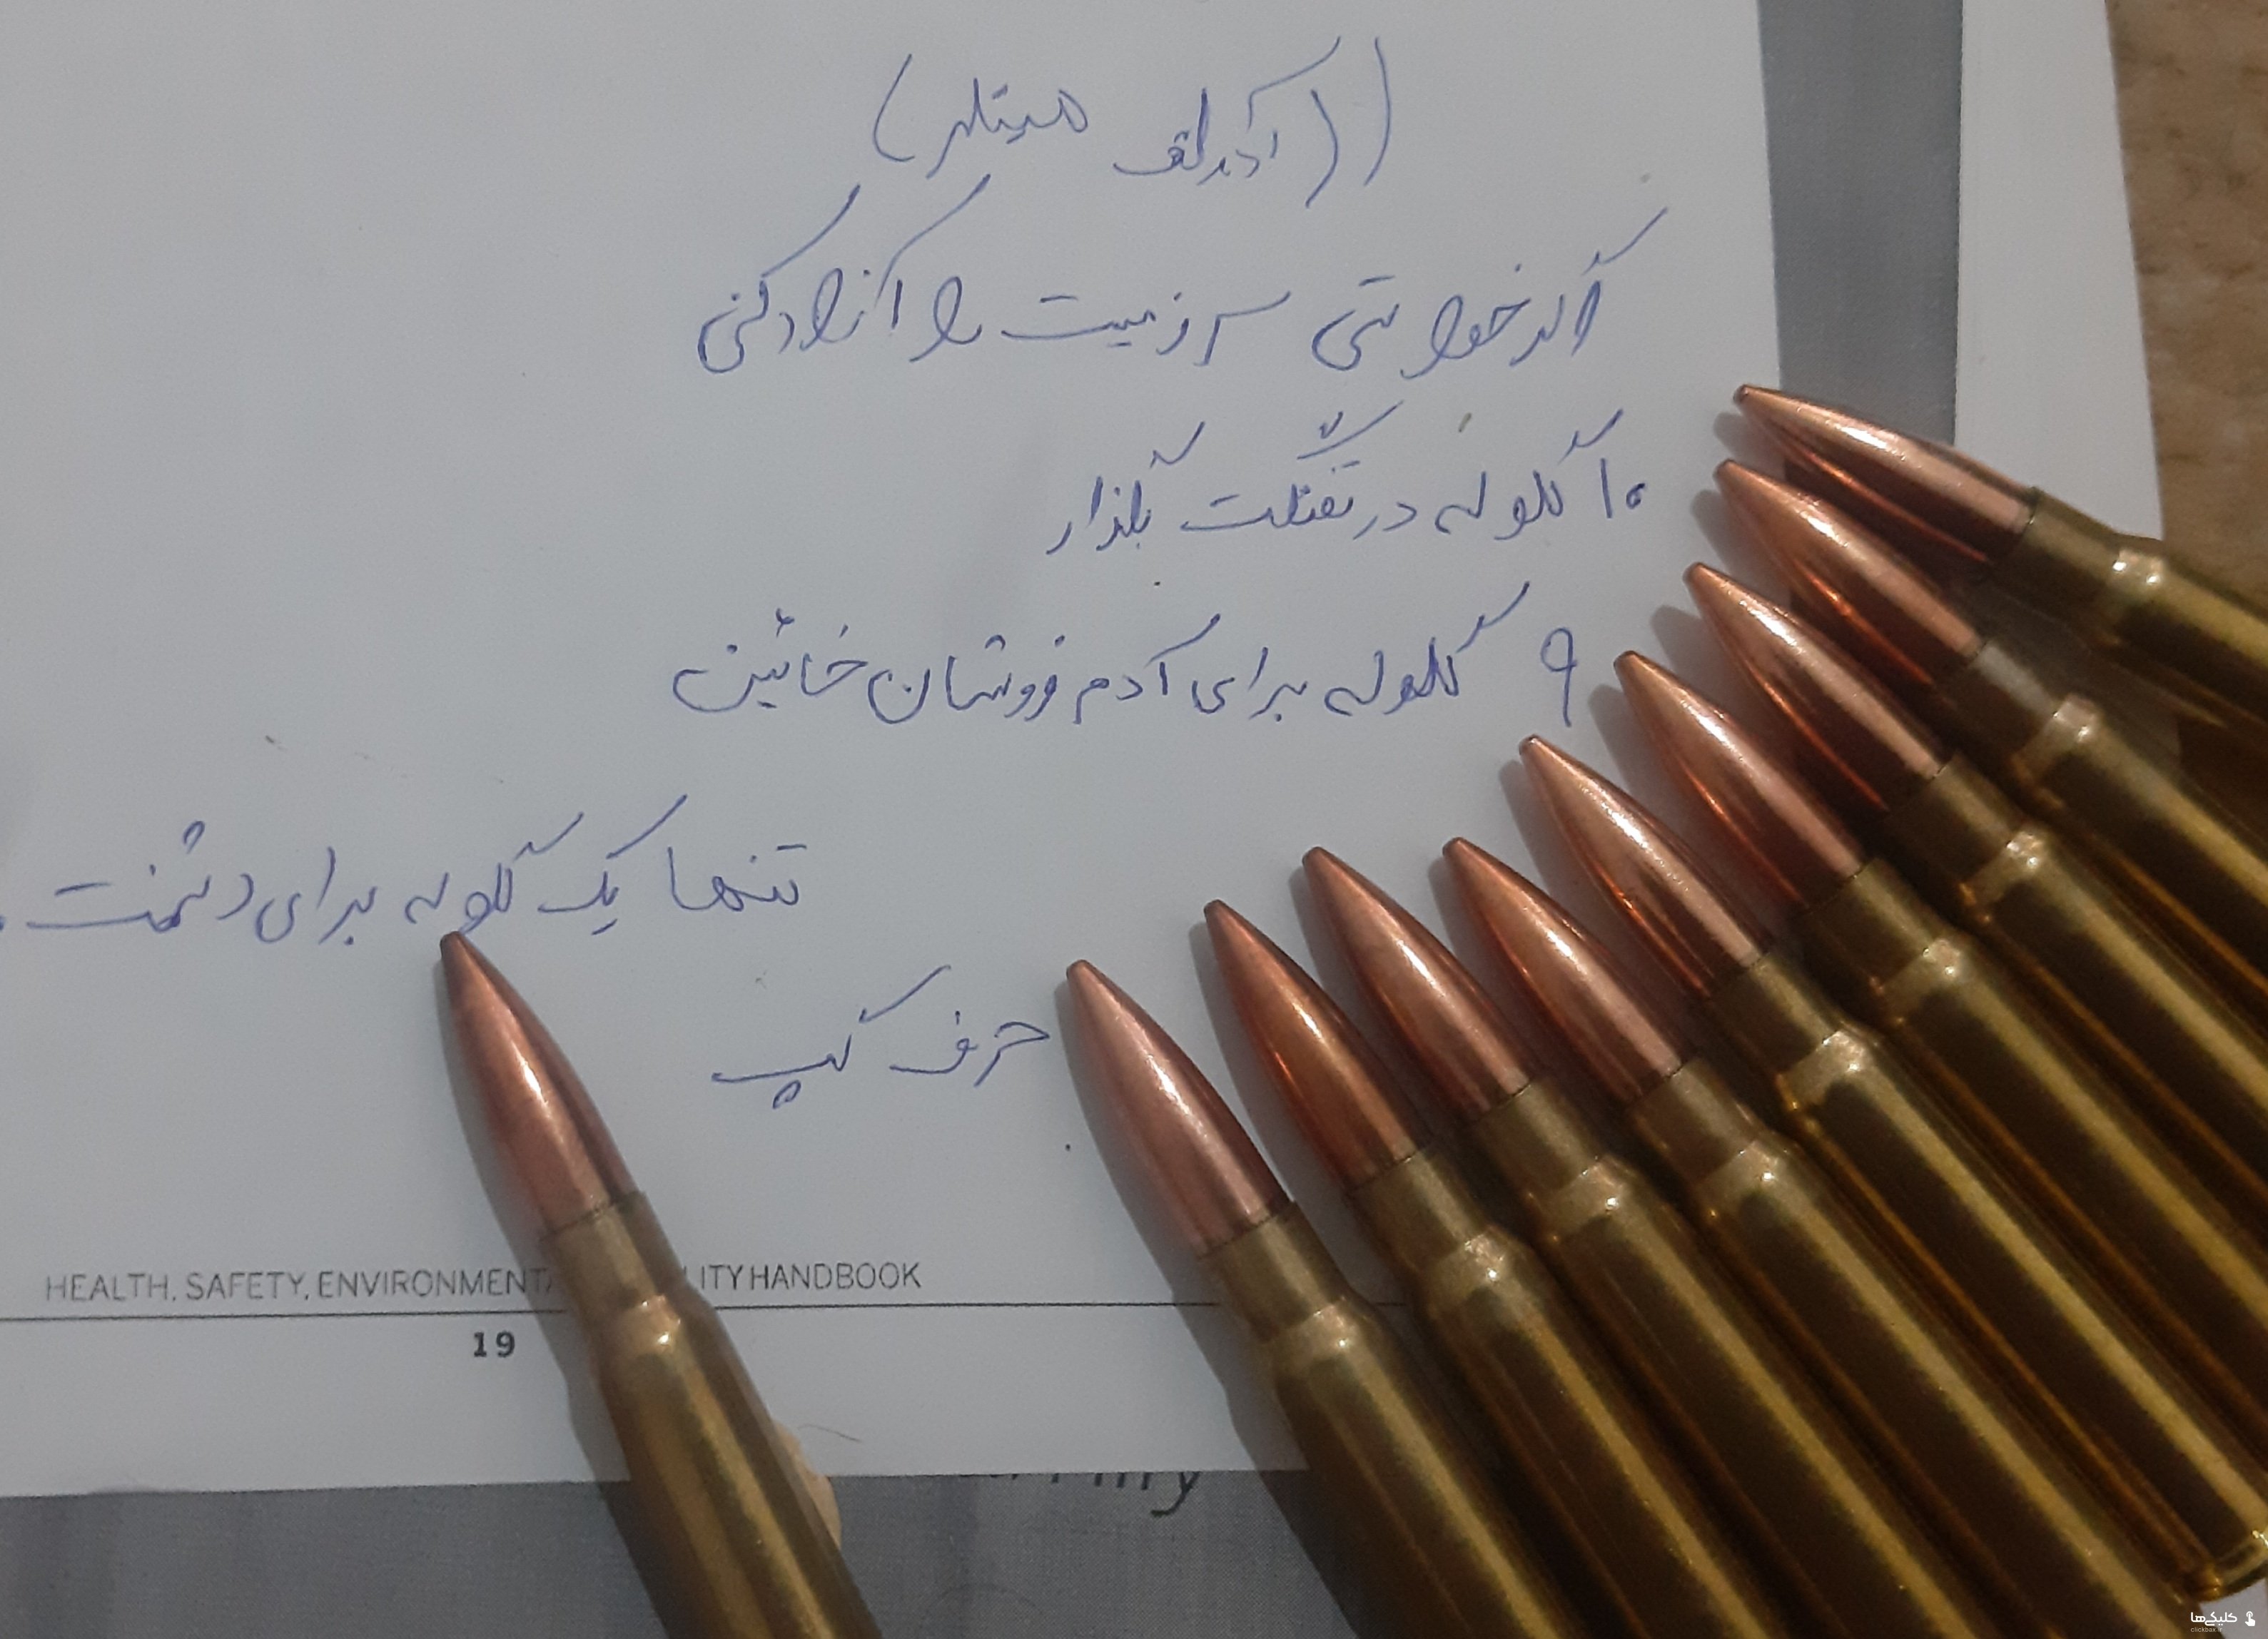 ((آدولف هیتلر)
اگر خواستی سرزمینت را آزاد کنی
۱۰ گلوله در تفنگت بگذار
۹ گلوله برای آدم فروشان خائین
تنها یک گلوله برای دشمنت.
حرف کپ
HEALTH, SAFETY, ENVIRONMENT ITY HANDBOOK
19
کلیکی‌ها